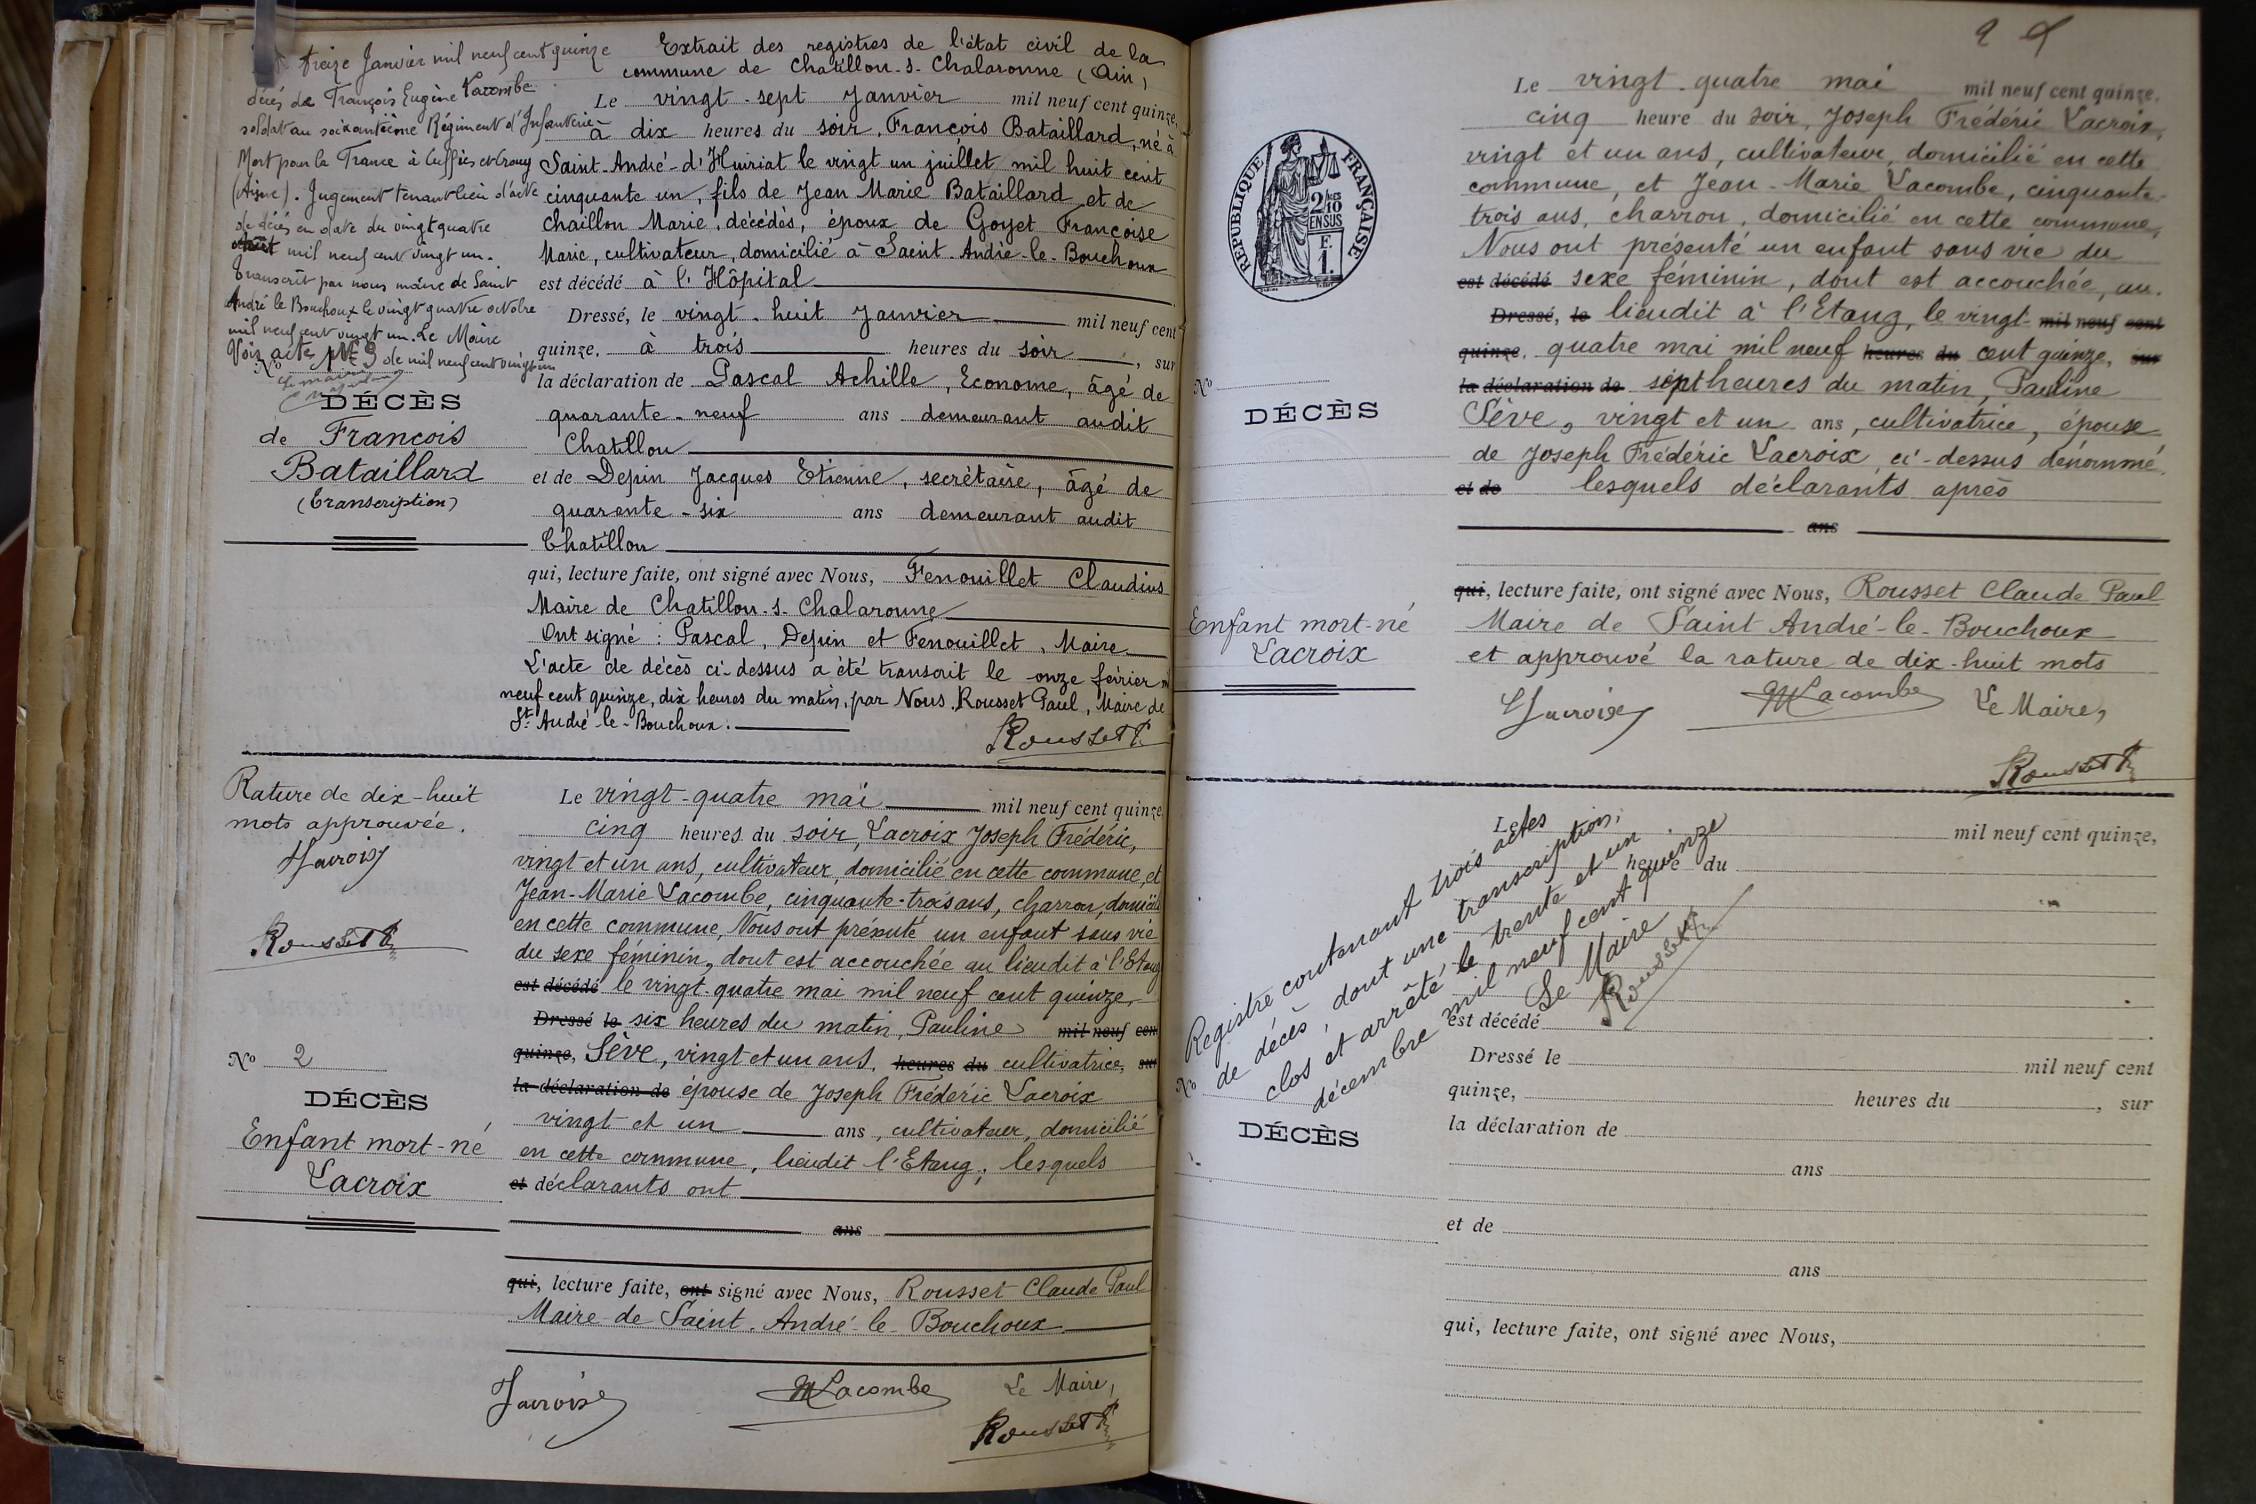 treize Janvier mil neuf cent quinze
décès de François Eugène Lacombe
soldat au soixantième Régiment d'Infanterie
Mort pour la France à Cuffies et Crouy
(Aisne). Jugement tenant lieu d'acte
de décès en date du vingt quatre
mil neuf cent vingt un.
Transcrit par nous maire de Saint
André le Bouchoux le vingt quatre octobre
mil neuf cent vingt un. Le Maire
Voir acte N° 9 de mil neuf cent vingt un
N°
DÉCÈS
de François
Bataillard
(Transcription)
Extrait des registres de l'état civil de la
commune de Chatillon-s-Chalaronne (Ain)
Le vingt-sept Janvier mil neuf cent quinze,
à dix heures du soir, François Bataillard, né à
Saint-André-d'Huiriat le vingt un juillet mil huit cent
cinquante un, fils de Jean Marie Bataillard et de
Chaillon Marie, décédés, époux de Goyet Françoise
Marie, cultivateur, domicilié à Saint-André-le-Bouchoux
est décédé à l'Hôpital
Dressé, le vingt-huit Janvier mil neuf cent
quinze, à trois heures du soir, sur
la déclaration de Pascal Achille, Econome, âgé de
quarante-neuf ans demeurant audit
Chatillon
et de Depin Jacques Etienne, secrétaire, âgé de
quarente-six ans demeurant audit
Chatillon
qui, lecture faite, ont signé avec Nous, Fenouillet Claudius
Maire de Chatillon-s-Chalaronne
Ont signé : Pascal, Depin et Fenouillet, Maire
L'acte de décès ci-dessus a été transcrit le onze février mil
neuf cent quinze, dix heures du matin, par Nous, Rousset Paul, Maire de
St André-le-Bouchoux.
Rousset P.
Rature de dix-huit
mots approuvée.
JLacroix
Rousset P.
N° 2
DÉCÈS
Enfant mort-né
Lacroix
Le vingt-quatre mai mil neuf cent quinze,
cinq heures du soir, Lacroix Joseph Frédéric,
vingt et un ans, cultivateur, domicilié en cette commune, et
Jean-Marie Lacombe, cinquante-trois ans, charron, domicilié
en cette commune, Nous ont présenté un enfant sans vie
du sexe féminin, dont est accouchée au lieudit à l'Etang
est décédé le vingt-quatre mai mil neuf cent quinze,
Dressé le six heures du matin, Pauline mil neuf cent
quinze, Sève, vingt et un ans, heures du cultivatrice, sur
la déclaration de épouse de Joseph Frédéric Lacroix
vingt et un ans, cultivateur, domicilié
en cette commune, lieudit l'Etang, lesquels
et déclarants ont
ans
qui, lecture faite, ont signé avec Nous, Rousset Claude Paul
Maire de Saint-André-le-Bouchoux
JLacroix JMLacombe Le Maire,
Rousset P.
2
RÉPUBLIQUE FRANÇAISE
2/10
EN SUS
F.
1.
N°
DÉCÈS
Enfant mort-né
Lacroix
Le vingt-quatre mai mil neuf cent quinze,
cinq heure du soir, Joseph Frédéric Lacroix,
vingt et un ans, cultivateur, domicilié en cette
commune, et Jean-Marie Lacombe, cinquante-
trois ans, charron, domicilié en cette commune,
Nous ont présenté un enfant sans vie du
est décédé sexe féminin, dont est accouchée, au
Dressé, le lieudit à l'Etang, le vingt- mil neuf cent
quinze, quatre mai mil neuf heures du cent quinze, sur
la déclaration de sept heures du matin, Pauline
Sève, vingt et un ans, cultivatrice, épouse
de Joseph Frédéric Lacroix ci-dessus dénommé,
et de lesquels déclarants après
ans
qui, lecture faite, ont signé avec Nous, Rousset Claude Paul
Maire de Saint André-le-Bouchoux
et approuvé la rature de dix-huit mots
JLacroix JMLacombe Le Maire,
Rousset P.
Registre contenant trois actes
de décès, dont une transcription,
clos et arrêté le trente et un
décembre mil neuf cent quinze
Le Maire
Rousset P.
N°
DÉCÈS
Le mil neuf cent quinze,
heure du
est décédé
Dressé le mil neuf cent
quinze, heures du , sur
la déclaration de
ans
et de
ans
qui, lecture faite, ont signé avec Nous,